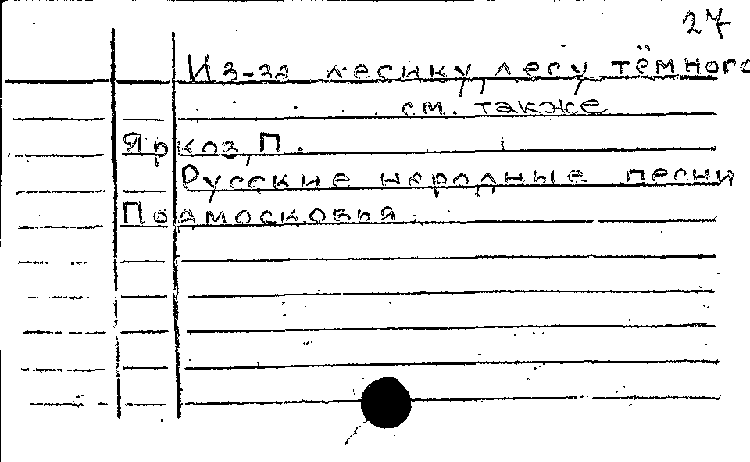 27
Из-за лесику, лесу тёмного
см. также
Яркоз, П.
Русские народные песни
Подмосковья.